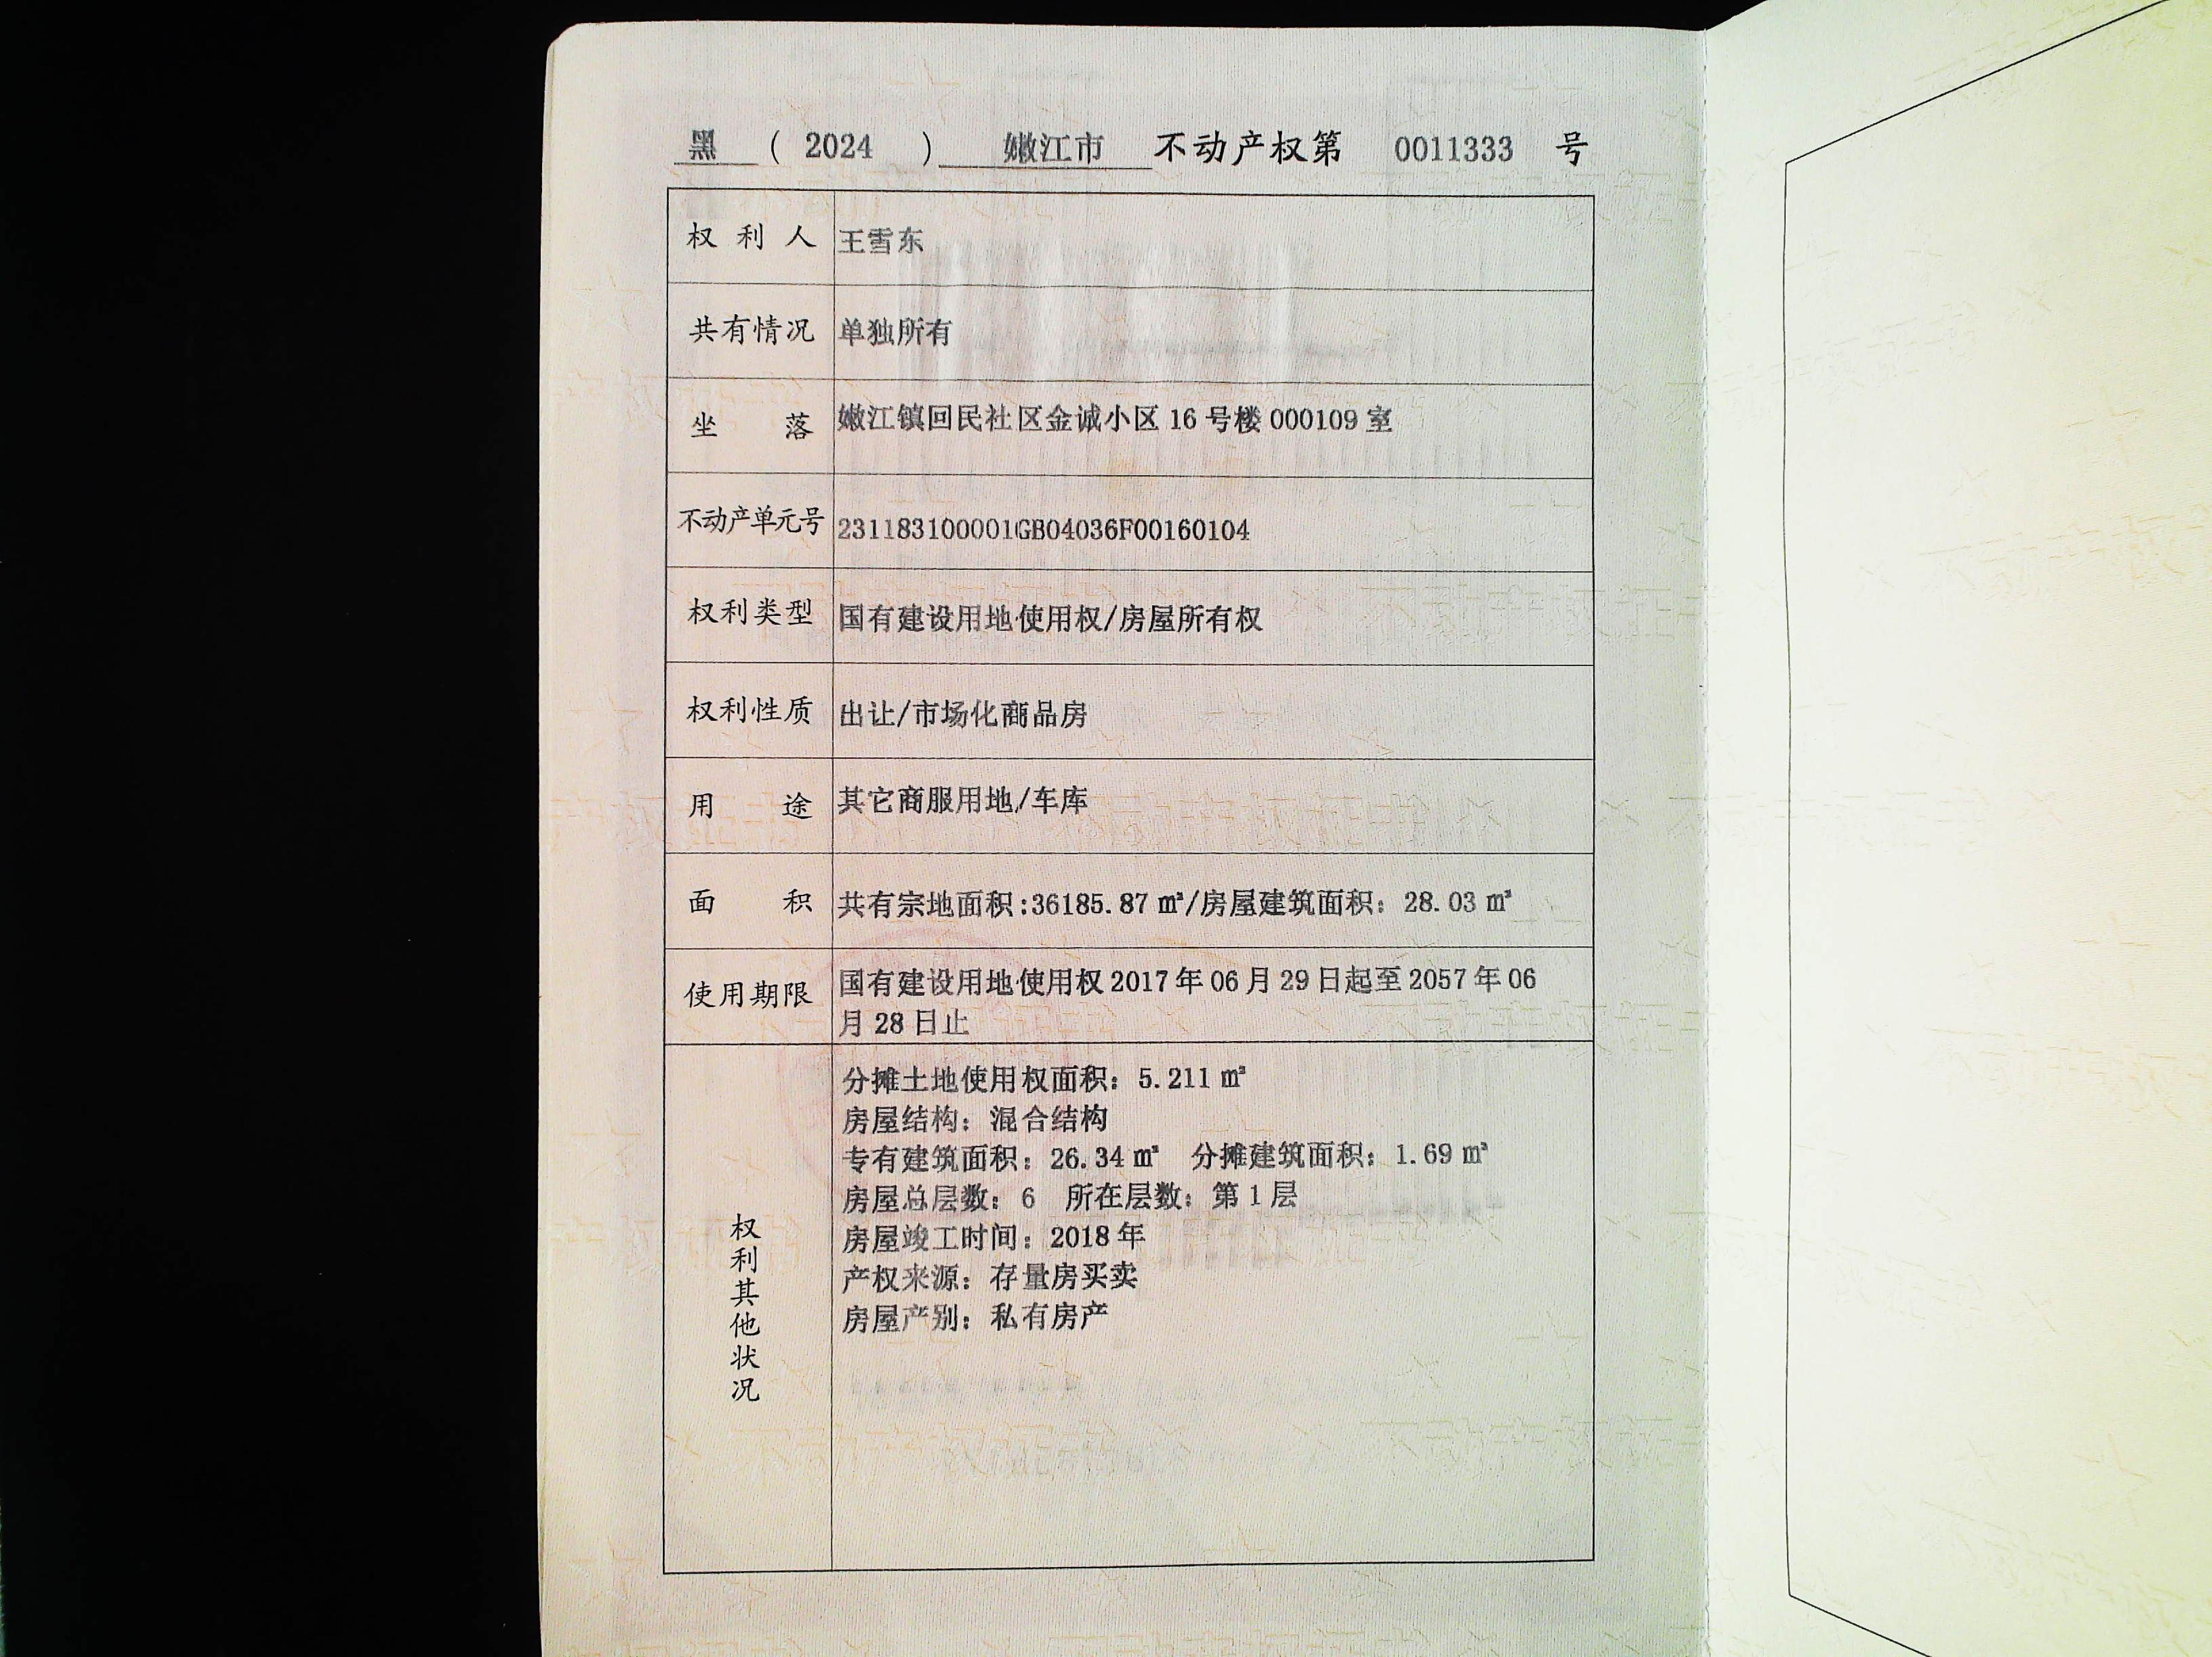 黑 ( 2024 ) 嫩江市 不动产权第 0011333 号
权利人 王雪东
共有情况 单独所有
坐落 嫩江镇回民社区金诚小区 16 号楼 000109 室
不动产单元号 231183100001GB04036F00160104
权利类型 国有建设用地使用权/房屋所有权
权利性质 出让/市场化商品房
用途 其它商服用地/车库
面积 共有宗地面积:36185.87 ㎡/房屋建筑面积：28.03 ㎡
使用期限 国有建设用地使用权 2017 年 06 月 29 日起至 2057 年 06
月 28 日止
权利其他状况
分摊土地使用权面积：5.211 ㎡
房屋结构：混合结构
专有建筑面积：26.34 ㎡ 分摊建筑面积：1.69 ㎡
房屋总层数：6 所在层数：第 1 层
房屋竣工时间：2018 年
产权来源：存量房买卖
房屋产别：私有房产